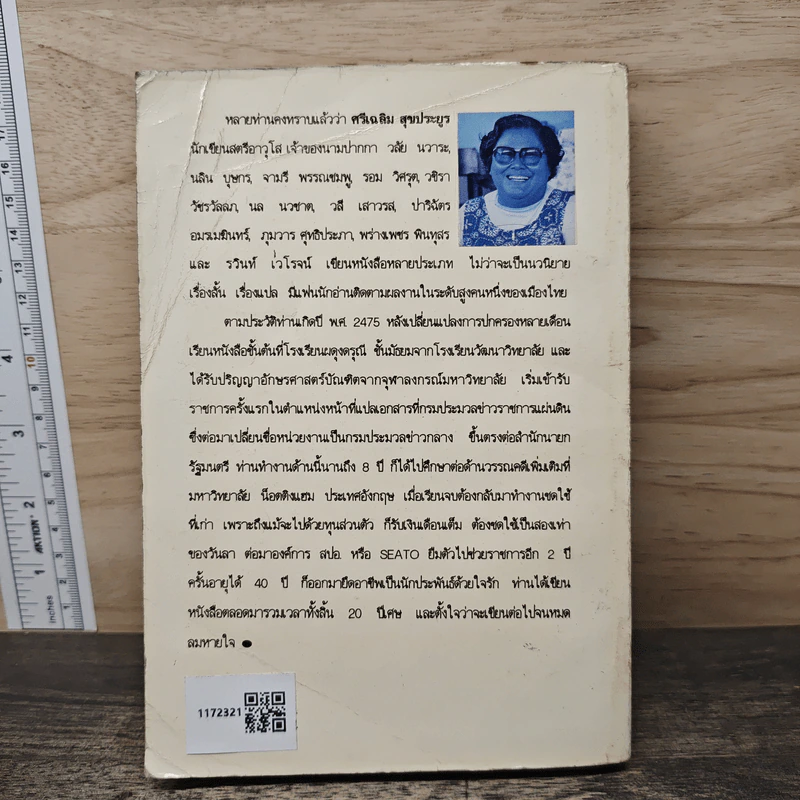 หลายท่านคงทราบแล้วว่า ศรีเฉลิม สุขประยูร
นักเขียนสตรีอาวุโส เจ้าของนามปากกา วลัย นวาระ,
นลิน บุษกร, จามรี พรรณชมพู, รอม วิศรุต, วชิรา
วัชรวัลลภ, นล นวชาต, วลี เสาวรส, ปาริฉัตร
อมรเมฆินทร์, ภุมวาร ศุทธิประภา, พร่างเพชร พินทุสร
และ รวินท์ เว่โรจน์ เขียนหนังสือหลายประเภท ไม่ว่าจะเป็นนวนิยาย
เรื่องสั้น เรื่องแปล มีแฟนนักอ่านติดตามผลงานในระดับสูงคนหนึ่งของเมืองไทย
ตามประวัติท่านเกิดปี พ.ศ. 2475 หลังเปลี่ยนแปลงการปกครองหลายเดือน
เรียนหนังสือชั้นต้นที่โรงเรียนผดุงดรุณี ชั้นมัธยมจากโรงเรียนวัฒนาวิทยาลัย และ
ได้รับปริญญาอักษรศาสตร์บัณฑิตจากจุฬาลงกรณ์มหาวิทยาลัย เริ่มเข้ารับ
ราชการครั้งแรกในตำแหน่งหน้าที่แปลเอกสารที่กรมประมวลข่าวราชการแผ่นดิน
ซึ่งต่อมาเปลี่ยนชื่อหน่วยงานเป็นกรมประมวลข่าวกลาง ขึ้นตรงต่อสำนักนายก
รัฐมนตรี ท่านทำงานด้านนี้นานถึง 8 ปี ก็ได้ไปศึกษาต่อด้านวรรณคดีเพิ่มเติมที่
มหาวิทยาลัย น็อตติงแฮม ประเทศอังกฤษ เมื่อเรียนจบต้องกลับมาทำงานชดใช้
ที่เก่า เพราะถึงแม้จะไปด้วยทุนส่วนตัว ก็รับเงินเดือนเต็ม ต้องชดใช้เป็นสองเท่า
ของวันลา ต่อมาองค์การ สปอ. หรือ SEATO ยืมตัวไปช่วยราชการอีก 2 ปี
ครั้นอายุได้ 40 ปี ก็ออกมายึดอาชีพเป็นนักประพันธ์ด้วยใจรัก ท่านได้เขียน
หนังสือตลอดมารวมเวลาทั้งสิ้น 20 ปีเศษ และตั้งใจว่าจะเขียนต่อไปจนหมด
ลมหายใจ ●
1172321
inches
ACTION
1
2
3
4
10
11
12
13
14
15
16
17